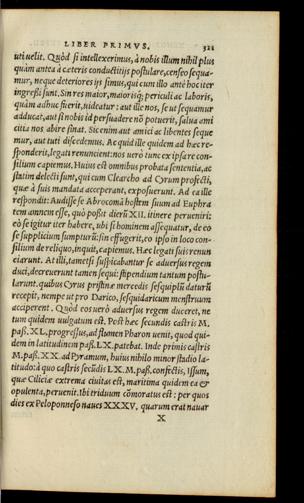 LIBER PRIMVS. 321
uti uelit. Quòd si intellexerimus, à nobis illum nihil plus
quàm antea à cæteris conductitijs postulare, censeo sequa-
mur, neque deteriores ijs simus, qui cum illo antè hoc iter
ingressi sunt. Sin res maior, maiorisq; periculi ac laboris,
quàm adhuc fuerit, uideatur: aut ille nos, se ut sequamur
adducat, aut si nobis id persuadere nō potuerit, salua ami
citia nos abire sinat. Sic enim aut amici ac libentes seque
mur, aut tuti discedemus. Ac quid ille quidem ad hæc re-
sponderit, legati renuncient: nos uerò tunc ex ipsa re con-
silium capiemus. Huius est omnibus probata sententia, ac
statim delecti sunt, qui cum Clearcho ad Cyrum profecti,
quæ à suis mandata acceperant, exposuerunt. Ad ea ille
respondit: Audisse se Abrocomā hostem suum ad Euphra
tem amnem esse, quò possit dierū XII. itinere perueniri:
eò se igitur iter habere, ubi si hominem assequatur, de eo
se supplicium sumpturū: sin effugerit, eo ipso in loco con-
silium de reliquo, inquit, capiemus. Hæc legati suis renun
ciarunt. At illi, tametsi suspicabantur se aduersus regem
duci, decreuerunt tamen sequi: stipendium tantum postu-
larunt. quibus Cyrus pristinæ mercedis sesquiplū daturū
recepit, nempe ut pro Darico, sesquidaricum menstruum
acciperent. Quòd eos uerò aduersus regem duceret, ne
tum quidem uulgatum est. Post hæc secundis castris M.
paß. XL. progressus, ad flumen Pharon uenit, quod qui-
dem in latitudinem paß. LX. patebat. Inde primis castris
M. paß. XX. ad Pyramum, huius nihilo minor stadio la-
titudo: à quo castris secūdis LX. M. paß. confectis, Issum,
quæ Ciliciæ extrema ciuitas est, maritima quidem ea &
opulenta, peruenit. Ibi triduum cōmoratus est: per quos
dies ex Peloponneso naues XXXV. quarum erat nauar
X